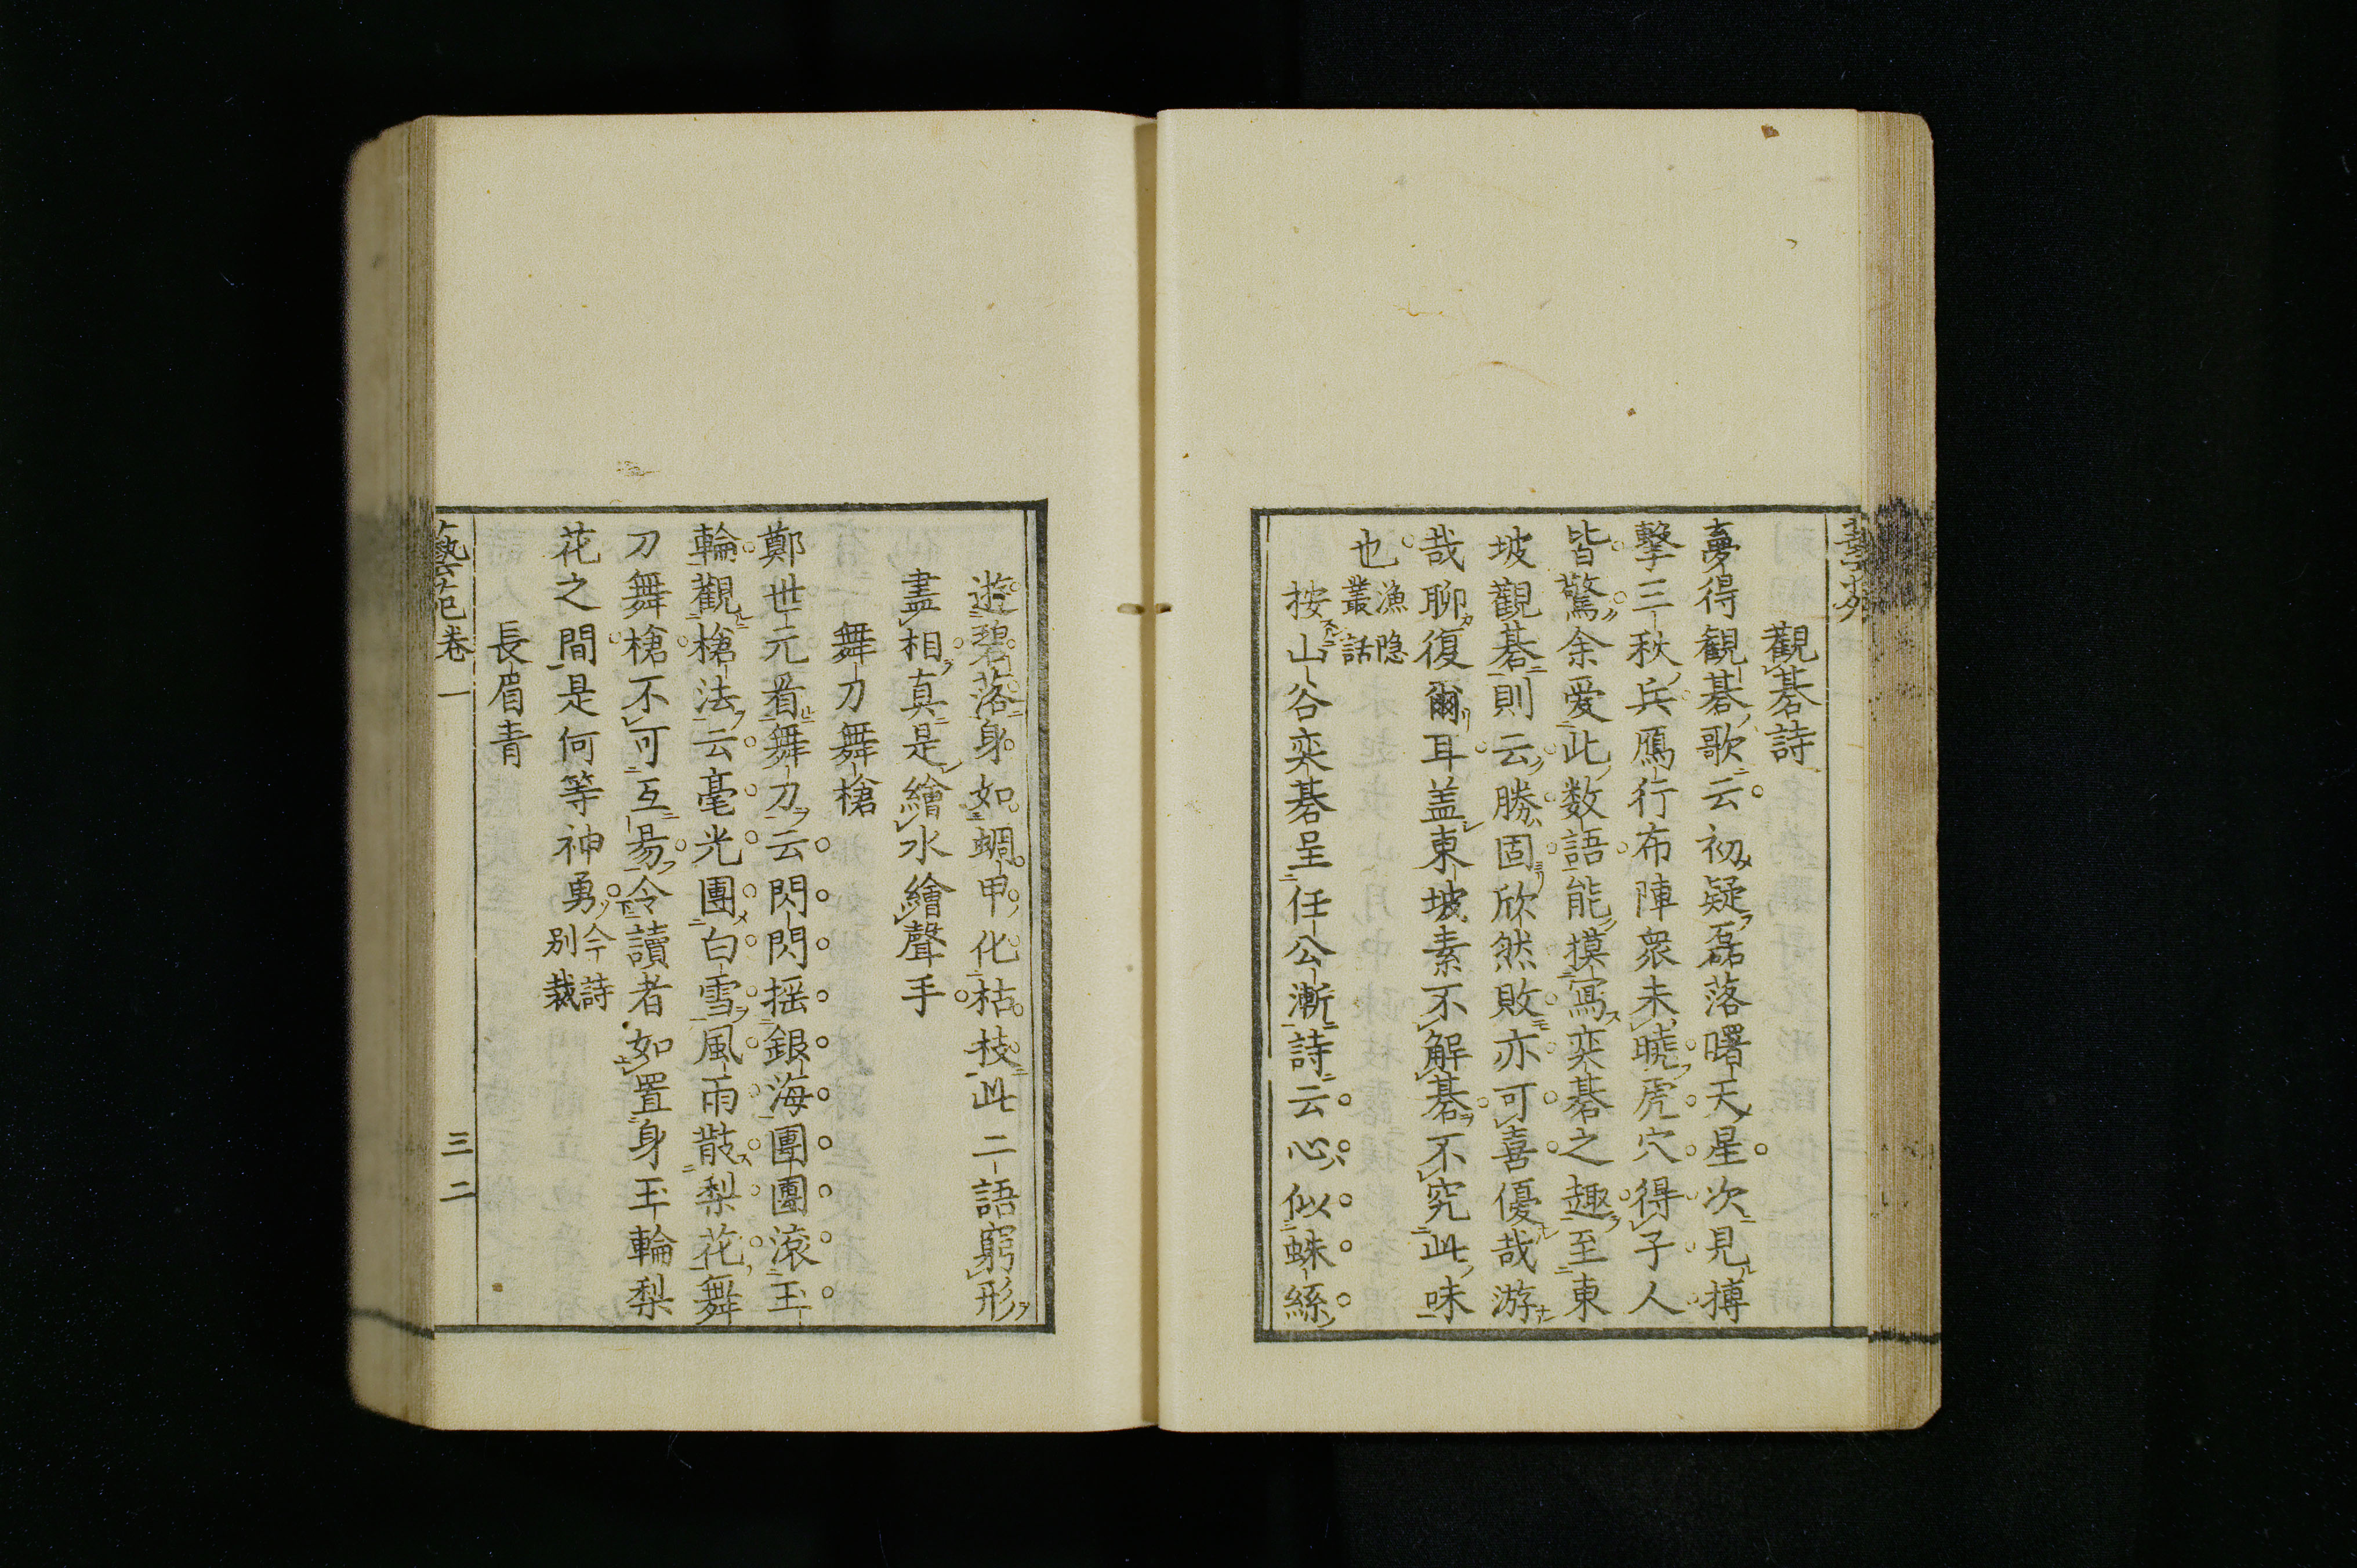 觀碁詩
夢得観碁歌云初疑磊落曙天星次見搏
擊三秋兵鴈行布陣衆未曉虎穴得子人
皆驚余愛此数語能摸寫奕碁之趣至東
坡觀碁則云勝固欣然敗亦可喜優哉游
哉聊復爾耳盖東坡素不解碁不究此味
也漁隐叢話
按山谷奕碁呈任公漸詩云心似蛛絲
遊碧落身如蜩甲化枯枝此二語窮形
盡相真是繪水繪聲手
舞刀舞槍
鄭世元看舞刀云閃閃揺銀海團團滚玉
輪觀槍法云毫光團白雪風雨散梨花舞
刀舞槍不可互易令讀者如置身玉輪梨
花之間是何等神勇今詩别裁
長眉青
藝苑卷一
三二